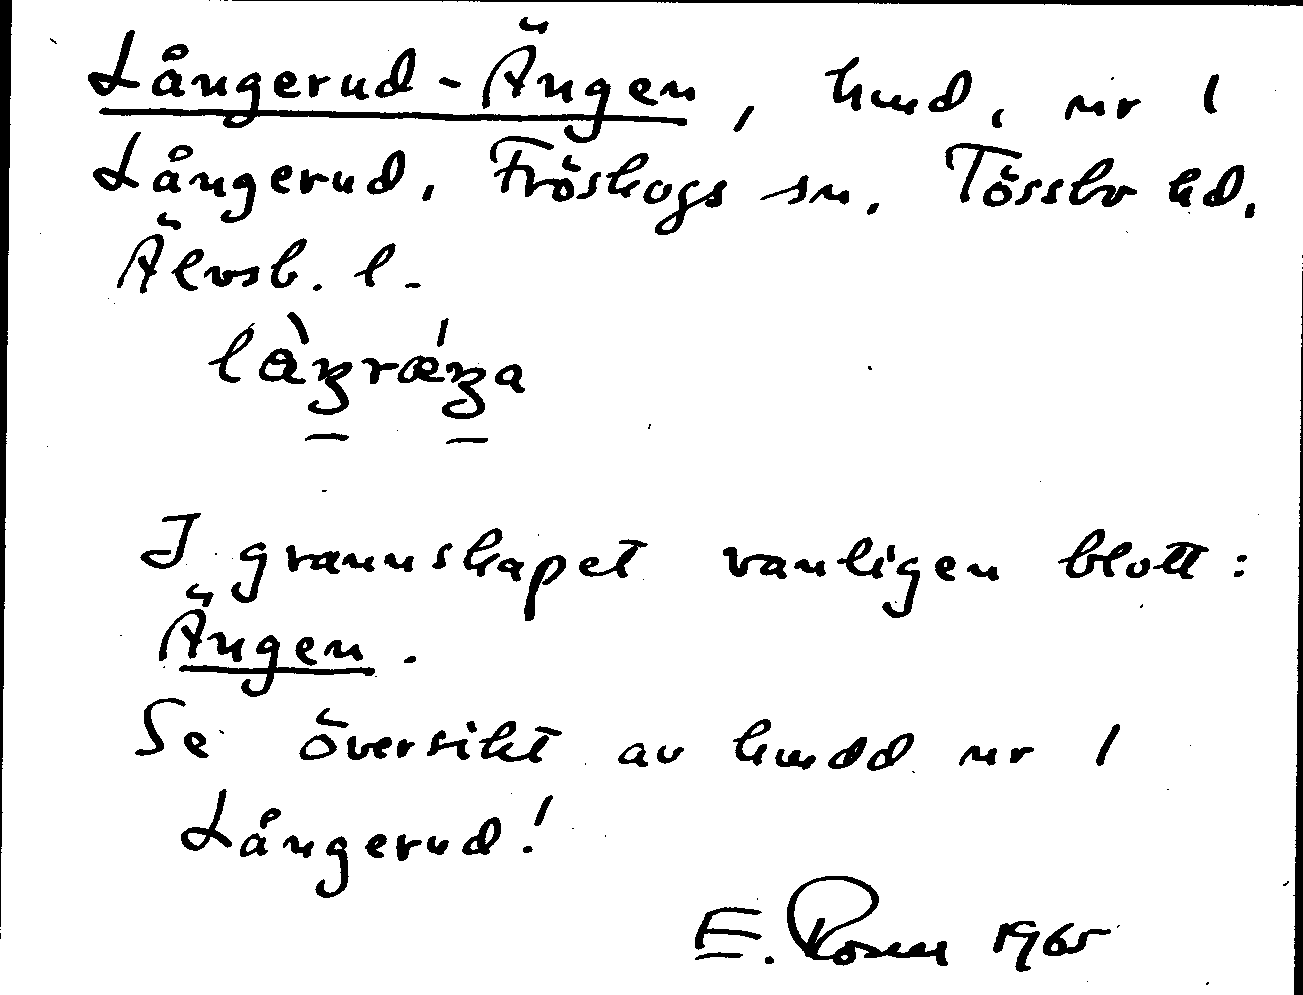 Långerud-Ängen, hmd, nr 1
Långerud, Fröskogs sn. Tössbo hd.
Älvsb. l.
I grannskapet vanligen blott:
Ängen.
Se översikt av hmdd nr 1
Långerud!
E. Rosen 1965